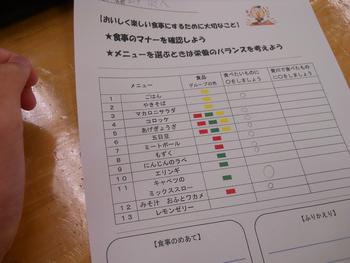 【おいしく楽しい食事にするために大切なこと】
★食事のマナーを確認しよう
★メニューを選ぶときは栄養のバランスを考えよう
メニュー 食品グループの色 食べたいものに○をしましょう
1 ごはん
2 やきそば
3 マカロニサラダ
4 コロッケ
5 あげぎょうざ
6 五目豆
7 ミートボール
8 もずく
9 にんじんのラペ
10 エリンギ
11 キャベツの
ミックススロー
12 みそ汁 おふとワカメ
13 レモンゼリー
【食事のめあて】
【ふりかえり】